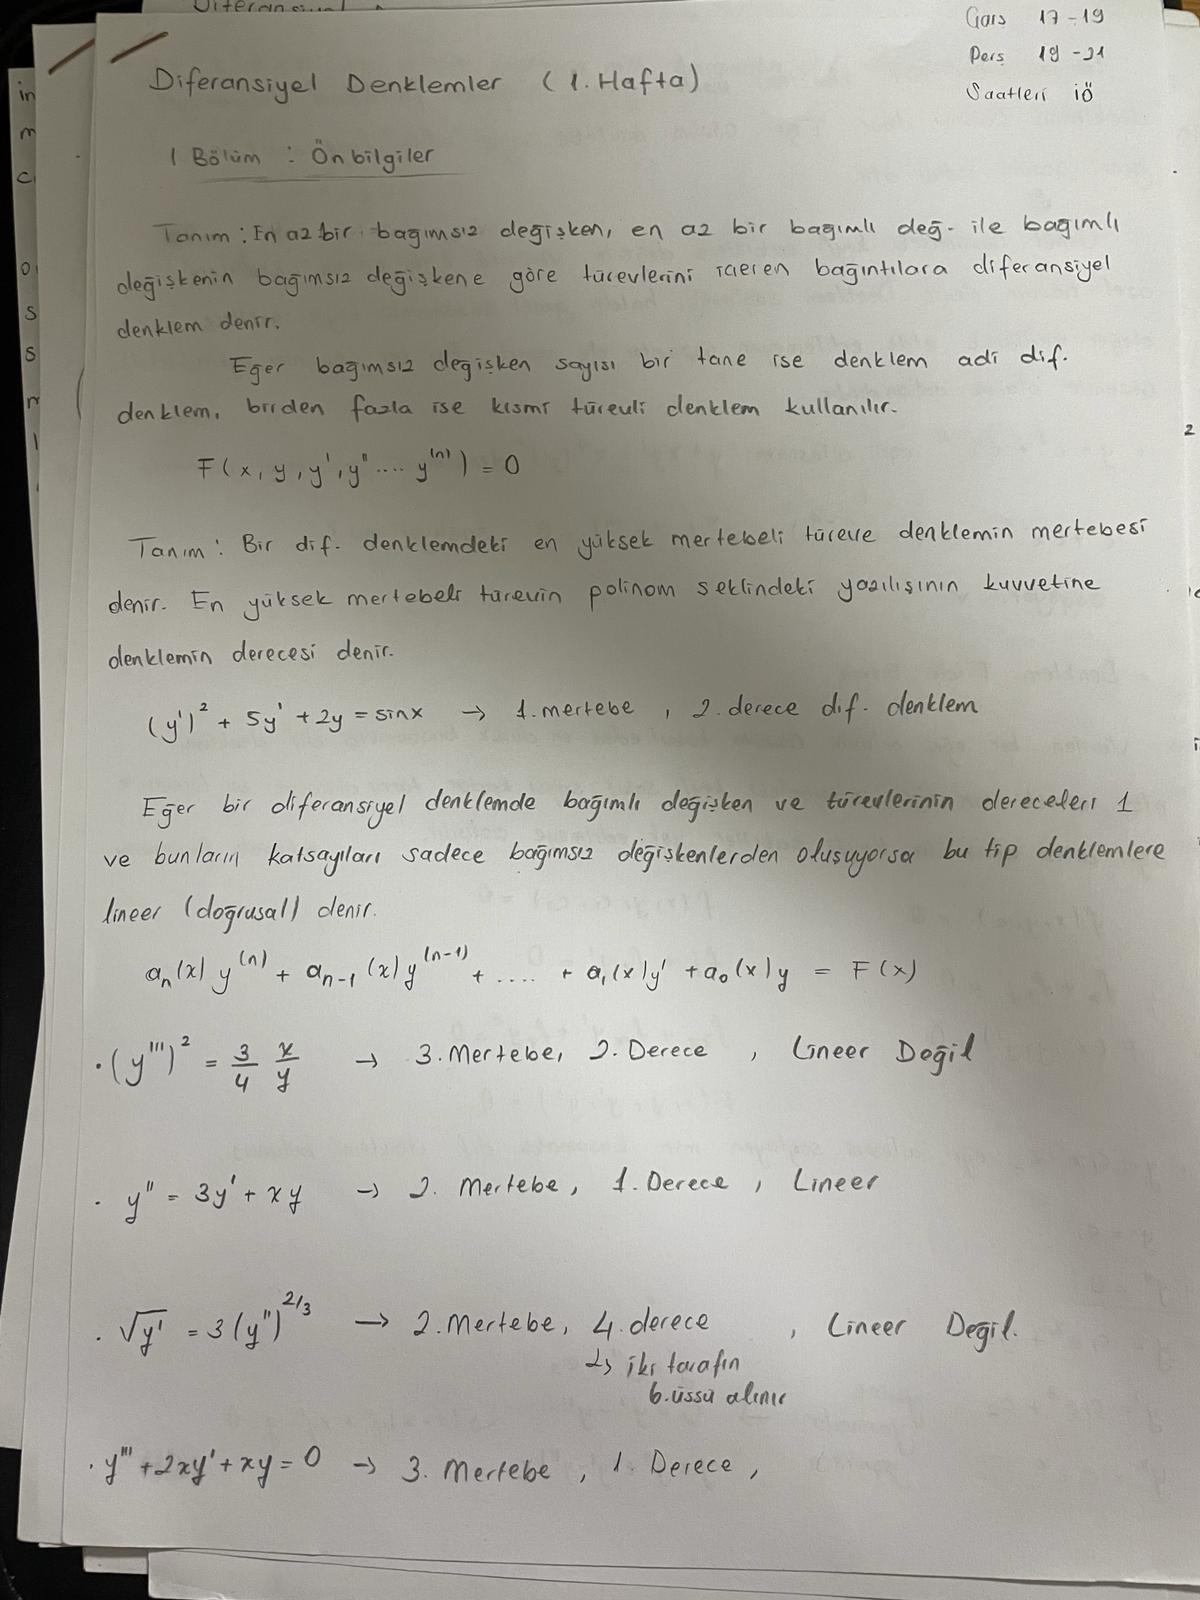 Çarş 17-19
Perş 19-21
Saatleri İÖ
Diferansiyel Denklemler (1. Hafta)
1 Bölüm : Ön bilgiler
Tanım : En az bir bağımsız değişken, en az bir bağımlı değ. ile bağımlı
değişkenin bağımsız değişkene göre türevlerini içeren bağıntılara diferansiyel
denklem denir.
Eğer bağımsız değişken sayısı bir tane ise denklem adi dif.
denklem, birden fazla ise kısmi türevli denklem kullanılır.
F(x, y, y', y'' .... y^(n)) = 0
Tanım : Bir dif. denklemdeki en yüksek mertebeli türeve denklemin mertebesi
denir. En yüksek mertebeli türevin polinom şeklindeki yazılışının kuvvetine
denklemin derecesi denir.
(y')² + 5y' + 2y = sinx → 1. mertebe , 2. derece dif. denklem
Eğer bir diferansiyel denklemde bağımlı değişken ve türevlerinin dereceleri 1
ve bunların katsayıları sadece bağımsız değişkenlerden oluşuyorsa bu tip denklemlere
lineer (doğrusal) denir.
aₙ(x) y^(n) + aₙ₋₁(x) y^(n-1) + .... + a₁(x)y' + a₀(x)y = F(x)
• (y''')² = 3/4 x/y → 3. Mertebe, 2. Derece , Lineer Değil
• y'' = 3y' + xy → 2. Mertebe, 1. Derece , Lineer
• √y' = 3(y'')^2/3 → 2. Mertebe, 4. derece , Lineer Değil.
↳ iki tarafın
6. üssü alınır
• y''' + 2xy' + xy = 0 → 3. Mertebe , 1. Derece ,